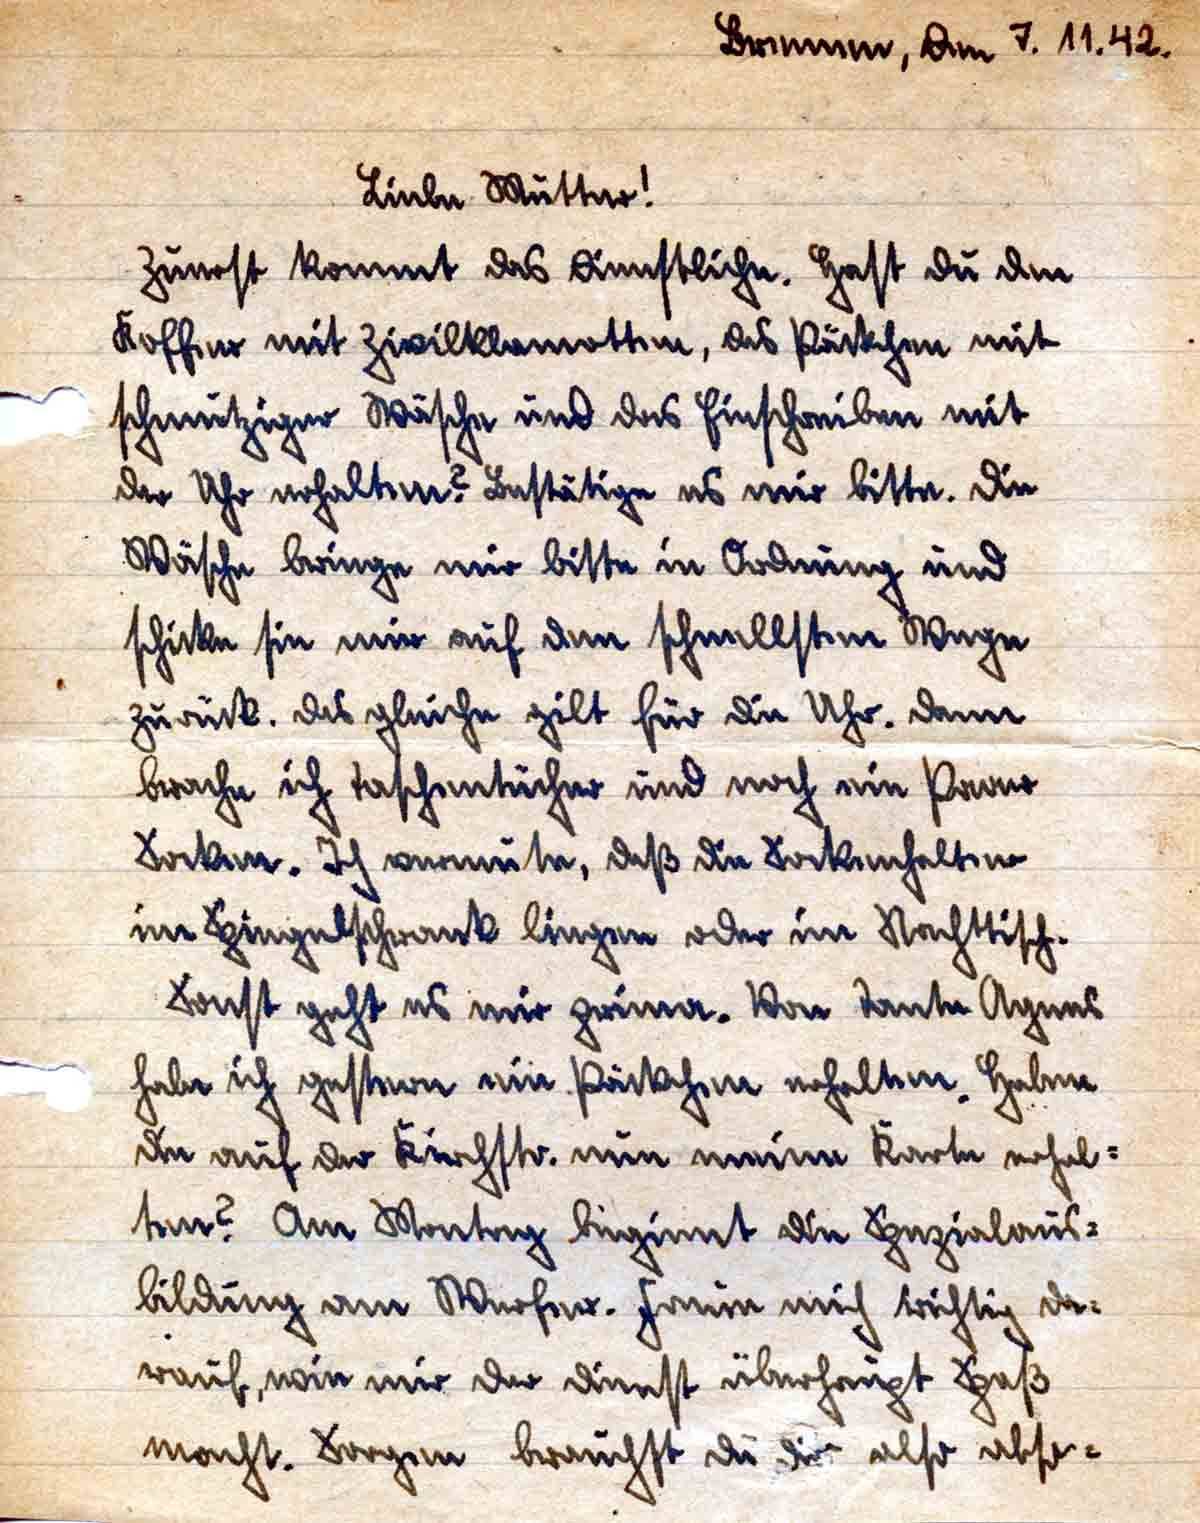 Bremen, den 7. 11. 42.
Liebe Mutter!
Zuerst kommt das Dienstliche. Hast du den
Koffer mit Zivilklamotten, das Päckchen mit
schmutziger Wäsche und das Einschreiben mit
der Uhr erhalten? Bestätige es mir bitte. Die
Wäsche bringe mir bitte in Ordnung und
schicke sie mir auf dem schnellsten Wege
zurück. Das gleiche gilt für die Uhr. Dann
brache ich Taschentücher und noch ein Paar
Socken. Ich vermute, daß die Sockenhalter
im Spiegelschrank liegen oder im Nachttisch.
Sonst geht es mir prima. Von Tante Agnes
habe ich gestern ein Päckchen erhalten. Haben
die auf der Kirchstr. nun meine Karte erhal=
ten? Am Montag beginnt die Spezialaus=
bildung am Werfer. Freue mich richtig da=
rauf, wie mir der Dienst überhaupt Spaß
macht. Sorgen brauchst du dir also abso=